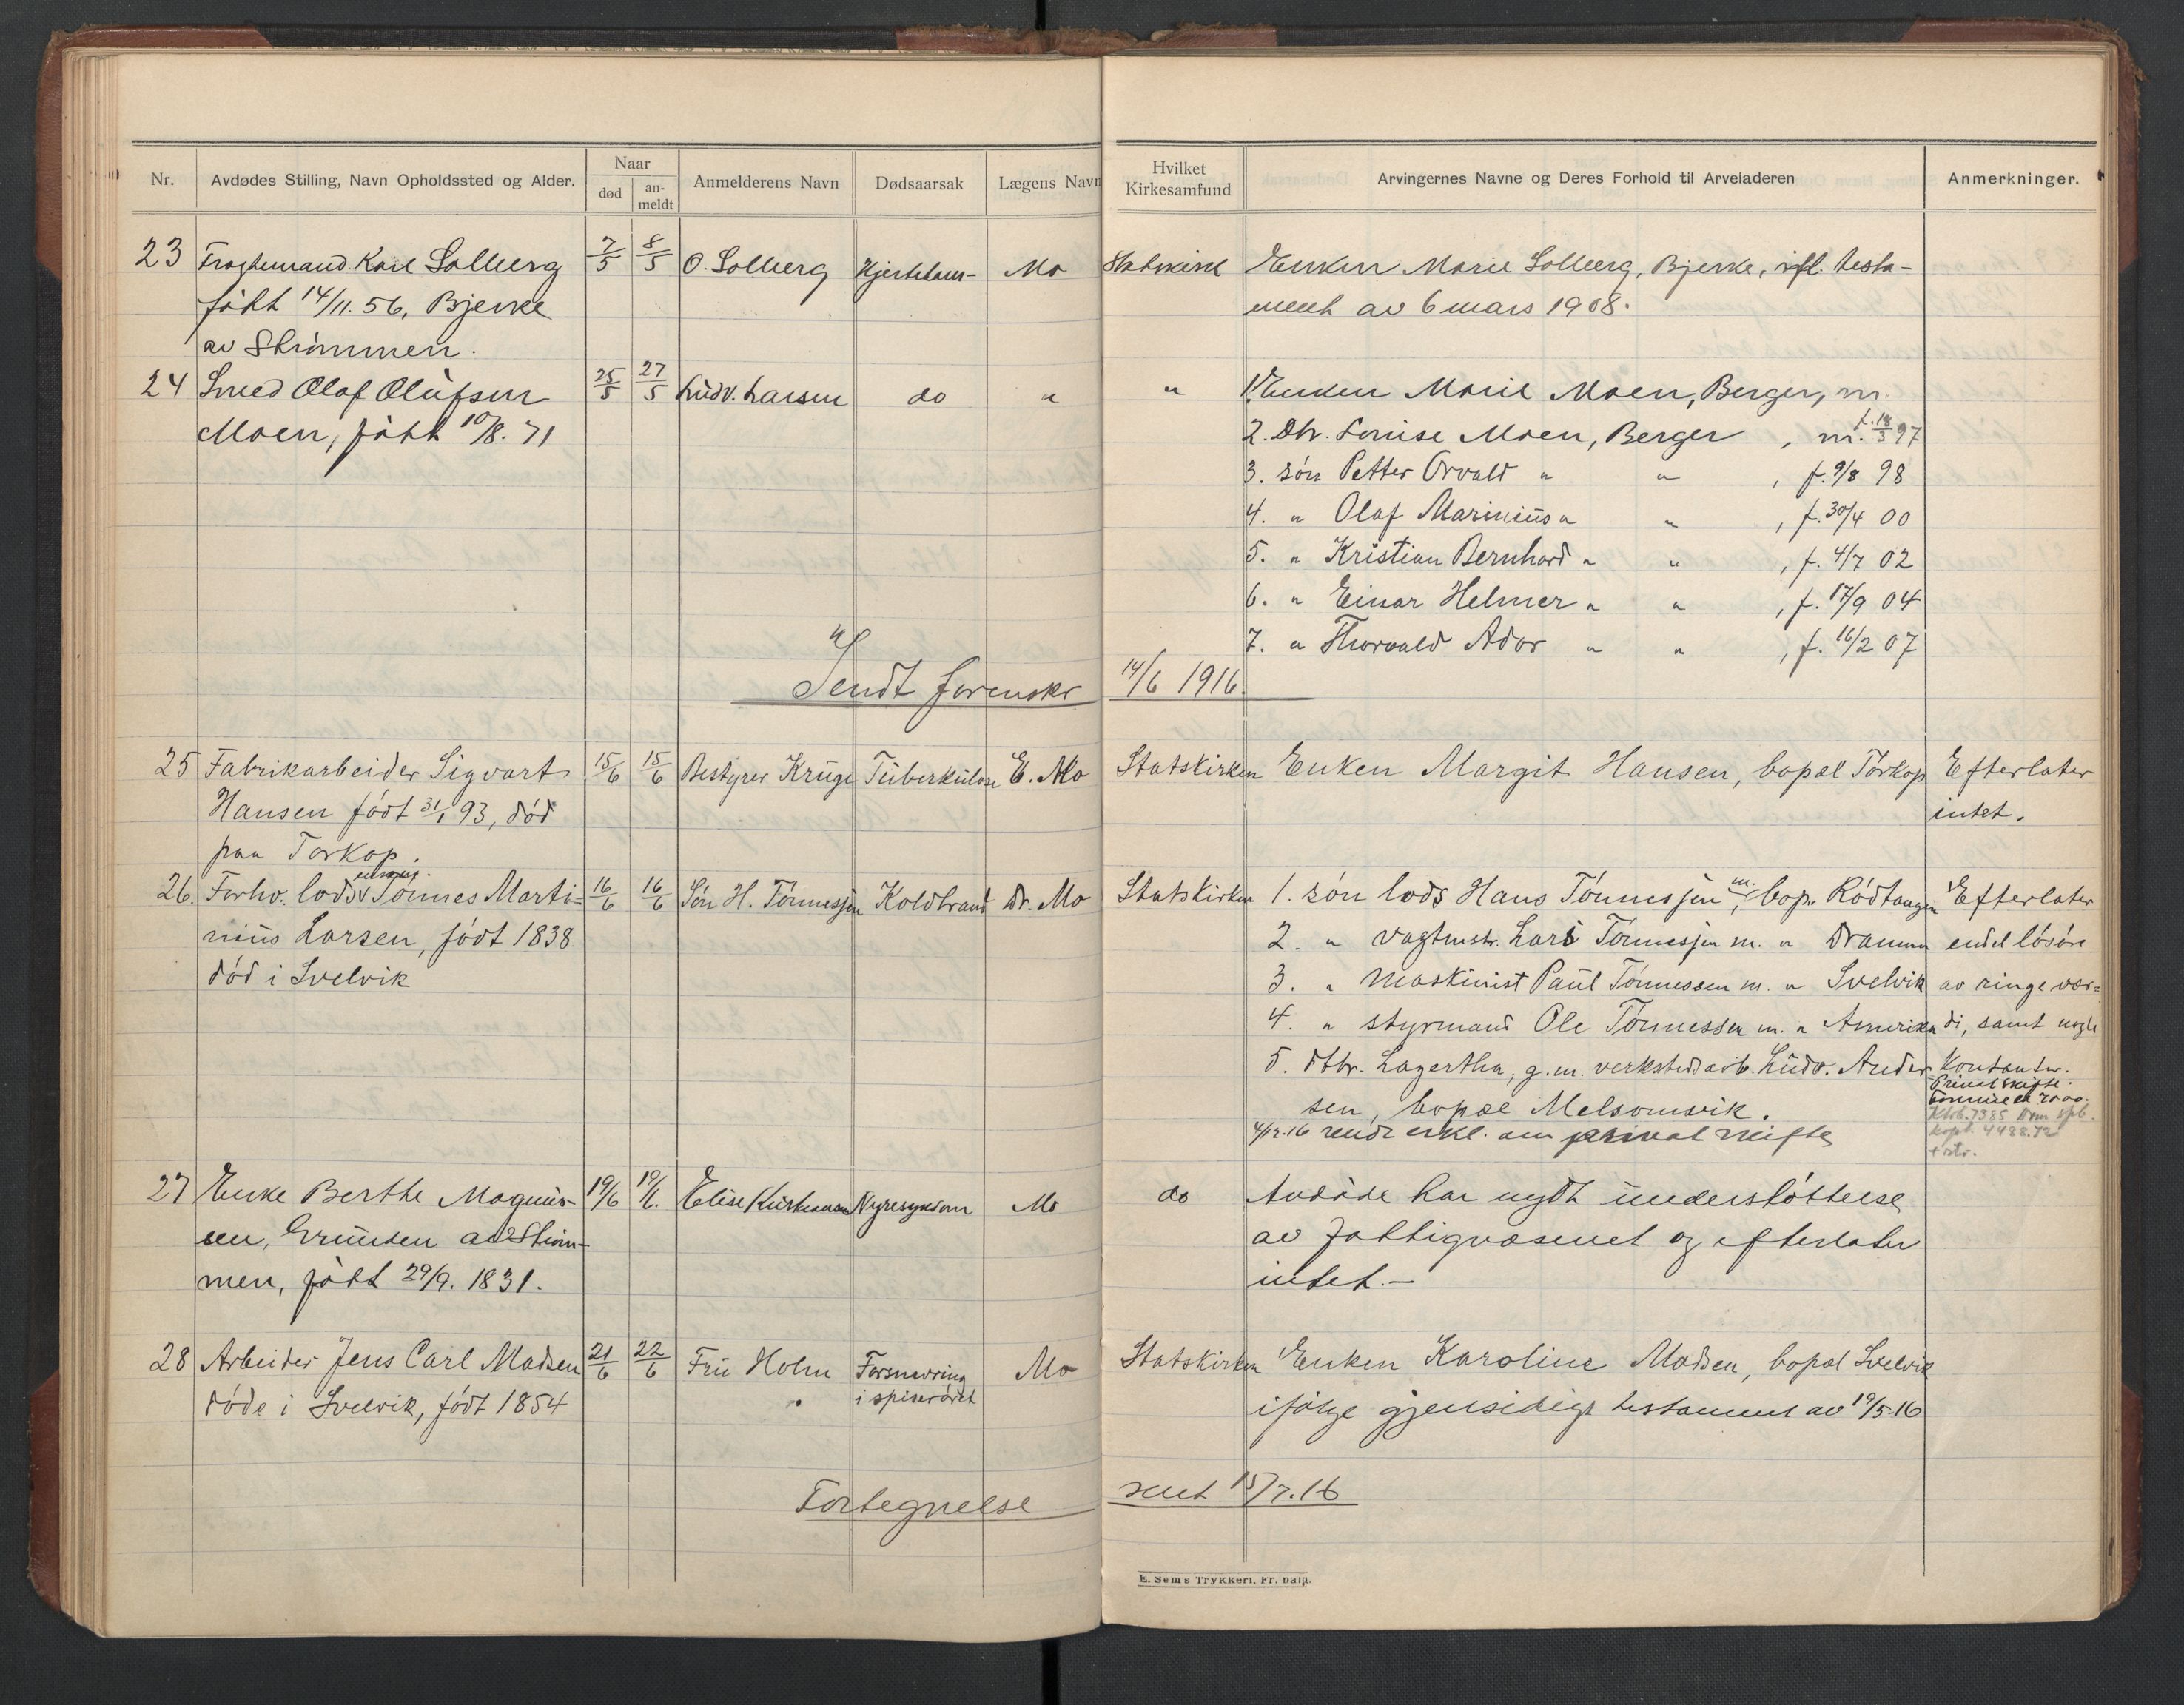 Nr. Avdødes Stilling, Navn Opholdssted og Alder. Naar død an-meldt Anmelderens Navn Dødsaarsak Lægens Navn Hvilket Kirkesamfund Arvingernes Navne og Deres Forhold til Arveladeren Anmerkninger.
23 Fragtemand Karl Solberg 7/5 8/5 O. Solberg Mo Statskirk Enken Marie Solberg, Bjerke, ifl. testa-
født 14/11. 56, Bjerke ment av 6 mars 1908.
av Strømmen.
24 Smed Olaf Olufsen 25/5 27/5 Ludv. Larsen do " " 1. Enken Marie Moen, Berger, m.
Moen, født 10/8. 71 2. Dtr. Louise Moen, Berger, m. f. 18/3 97
3. søn Petter Orvald " " , f. 9/8 98
4. " Olaf Marinius " " , f. 30/4 00
5. " Kristian Bernhard " " , f. 4/7 02
6. " Einar Helmer " " , f. 17/9 04
7. " Thorvald Ador " " , f. 16/2 07
Sendt sorenskr 14/6 1916.
25 Fabrikarbeider Sigvart 15/6 15/6 Bestyrer Kruge Tüberkulose E. Mo Statskirken Enken Margit Hansen, bopæl Torkop Efterlater
Hansen født 31/1 93, død intet.
paa Torkop.
26. Forhv. lods Tønnes Marti= 16/6 16/6 Søn H. Tønnessen Koldbrand Dr. Mo Statskirken 1. søn lods Hans Tønnessen m., bop. Rødtangen Efterlater
nius Larsen, født 1838 2. " vagtmstr. Lars Tønnessen m. " Drammen endel løsøre
død i Svelvik 3. " Maskinist Paul Tønnessen m. " Svelvik av ringe vær=
4. " styrmand Ole Tønnessen m. " Amerika di, samt nogle
5. dtr. Lagertha, g. m. verkstedsarb. Ludv. Ander- Kontanter.
sen, bopæl Melsomvik. Privat skifte.
4/12.16 sendt erkl. om privat skifte
27 Enke Berthe Magnus- 19/6 19/6. Elise Nyresykdom Mo do Avdøde har nydt understøttelse
sen, Grunden av Strøm- av Fattigvæsenet og efterlater
men, født 29/9. 1831. intet.-
28 Arbeider Jens Carl Madsen 21/6 22/6 Fru Holm Forsnevring Mo Statskirken Enken Karoline Madsen, bopæl Svelvik
døde i Svelvik, født 1854 i spiserøret ifølge gjensidigt testament av 19/5-16
Fortegnelse sent 15/7.16
E. Sem's Trykkeri, Fr. hald.